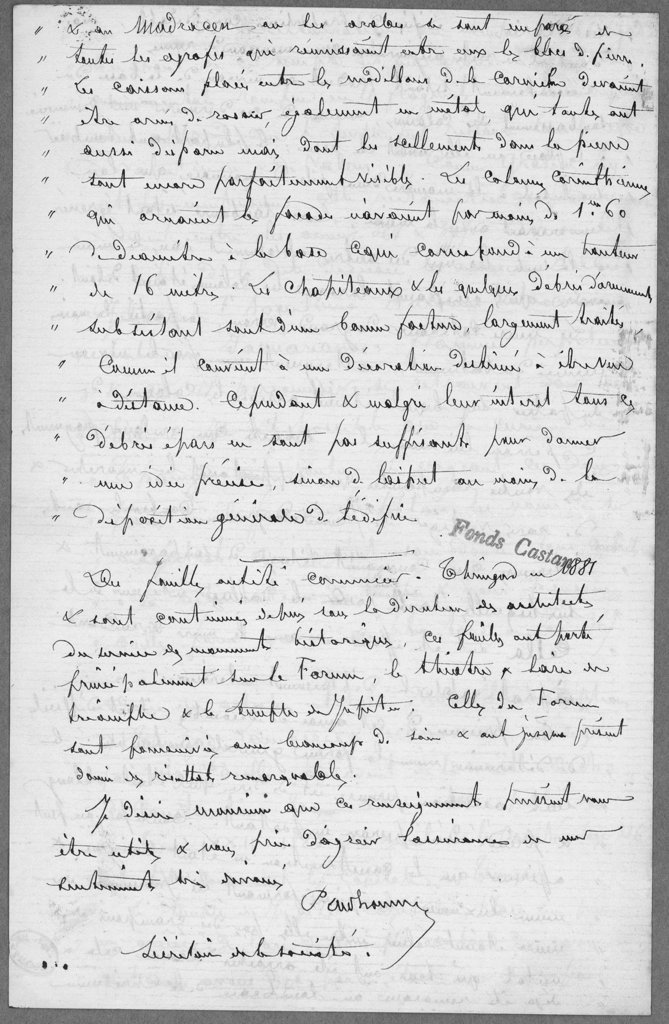 " & au Madracen où les arabes se sont emparé et
" toutes les agrafes qui réunissaient entre eux les blocs de pierre.
" Les caissons placés entre les modillons de la corniche devaient
" être ornés de rosaces également en métal qui toutes ont
" aussi disparu mais dont les scellements dans la pierre
" sont encore parfaitement visibles. Les colonnes corinthiennes
" qui ornaient la façade n'avaient pas moins de 1m 60
" de diamètre à la base ce qui correspond à une hauteur
" de 16 mètres. Les chapiteaux & les quelques débris d'ornements
" subsistant sont d'une bonne facture, largement traités
" comme il convient à une décoration destinée à être vue
" à distance. Cependant & malgré leur intérêt tous ces
" débris épars ne sont pas suffisants pour donner
" une idée précise, sinon de l'aspect au moins de la
" disposition générale de l'édifice
Fonds Castan
Des fouilles ont été commencées à Thimgad en 1881
& sont continuées depuis sous la direction des architectes
du service des monuments historiques, ces fouilles ont porté
principalement sur le Forum, le théâtre, l'arc de
triomphe & le temple de Jupiter. Celles du Forum
sont poursuivies avec beaucoup de soin & ont jusqu'à présent
donné des résultats remarquables.
Je désire monsieur que ces renseignements puissent vous
être utiles & vous prie d'agréer l'assurance de mes
sentiments très dévoués
Secrétaire de la société.